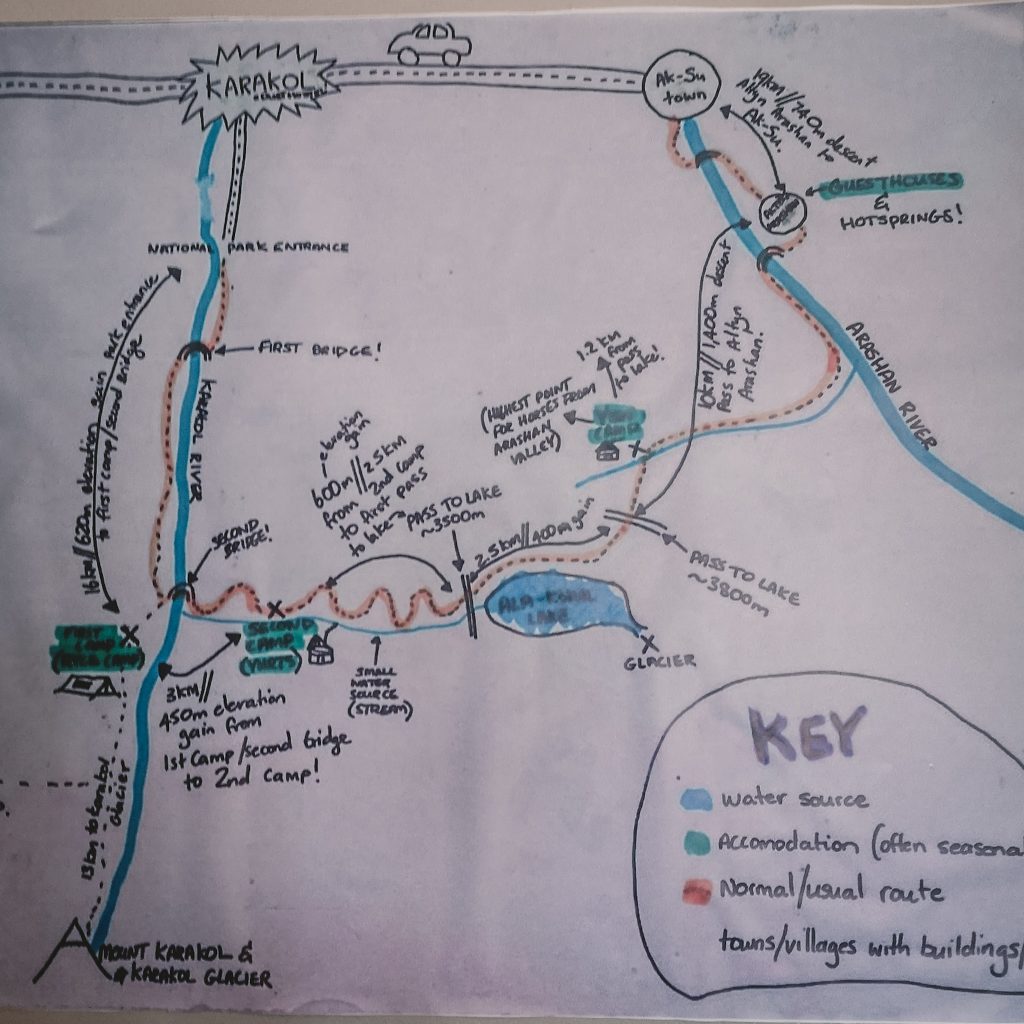 KARAKOL
Ak-Su
town
19km//740m descent
Altyn Arashan to
Ak-Su.
GUESTHOUSES
&
HOTSPRINGS!
NATIONAL PARK ENTRANCE
16km//620m elevation gain Park entrance
to first camp/second bridge
FIRST BRIDGE!
KARAKOL RIVER
ARASHAN RIVER
10km//1,400m descent
Pass to Altyn
Arashan!
1.2 km
from
pass
to lake!
(HIGHEST POINT
FOR HORSES FROM
ARASHAN
VALLEY)
CAMP
elevation
gain
600m//2.5km
from 2nd Camp
to first pass
to lake
PASS TO LAKE
~3500m
2.5km//400m gain
PASS TO LAKE
~3800m
SECOND
BRIDGE!
FIRST
CAMP
SECOND
CAMP
(YURTS)
ALA-KUL
LAKE
GLACIER
SMALL
WATER
SOURCE
(STREAM)
3km//
450m elevation
gain from
1st Camp/second bridge
to 2nd Camp!
13km to Karakol
Glacier
MOUNT KARAKOL &
KARAKOL GLACIER
KEY
water source
Accomodation (often seasonal
Normal/usual route
towns/villages with buildings/